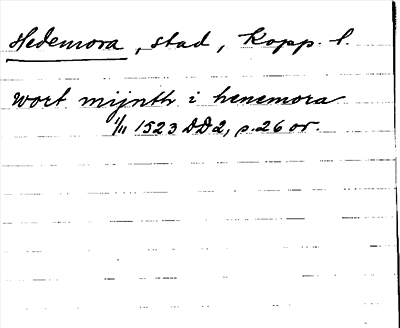 Hedemora, stad, Kopp. l.
wort mijnth i henemora
1/11 1523 DD2, p. 26 or.